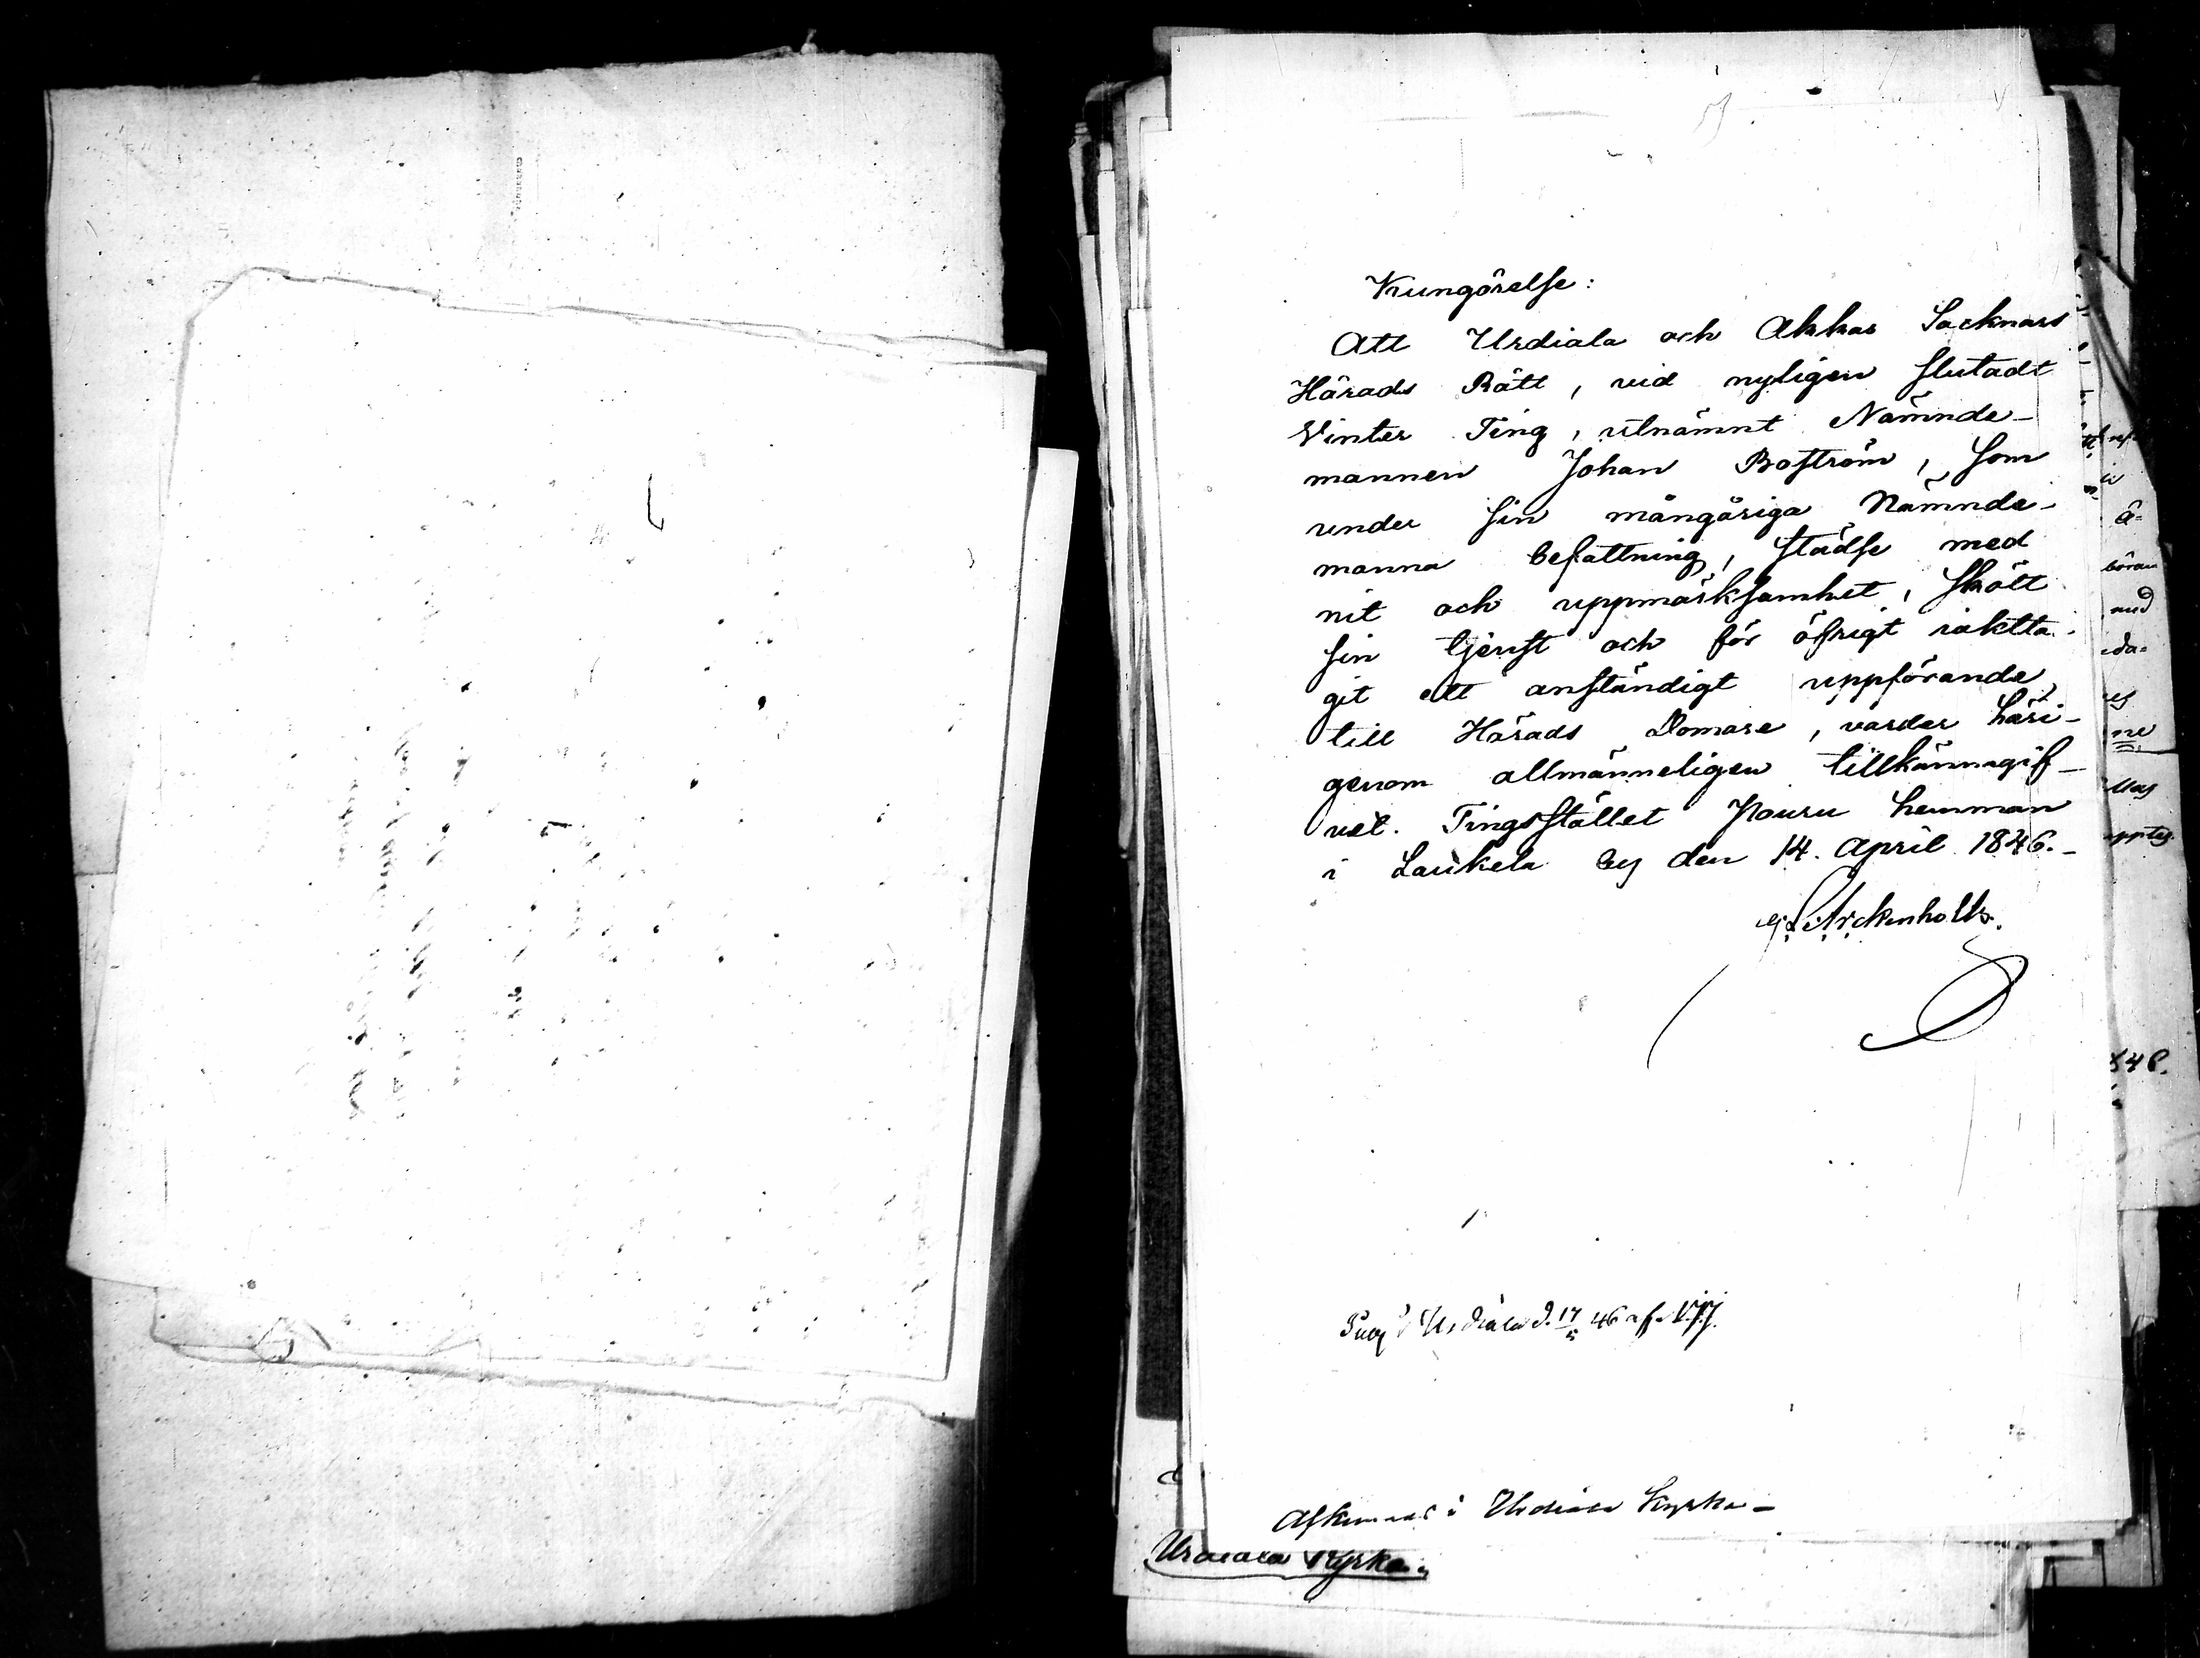 Kungörelse:
Att Urdiala och Akkas Socknars
Härads Rätt, vid nyligen slutadt
Vinter Ting, utnämnt Nämnde-
mannen Johan Boström, som
under sin mångåriga Nämnde-
manna befattning, städse med
nit och uppmärksamhet, skött
sin tjenst och för öfrigt iaktta-
git ett anständigt uppförande,
till Härads Domare, varder häri-
genom allmänneligen tillkännagif-
vet. Tingsstället Pouru hemman
i Laukela by den 14. April 1846.-
Arckenholtz.
Urdiala d. 17/5 46 af
i Urdiala Kyrka-
Urdiala Kyrka.